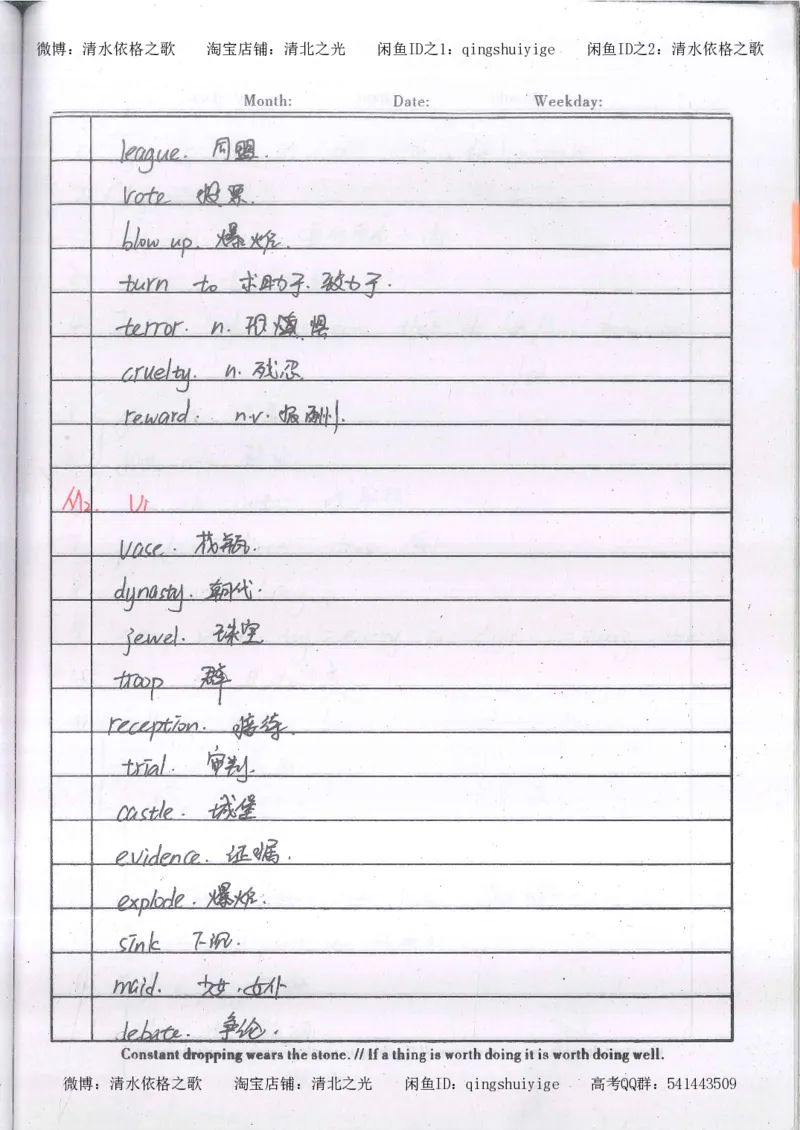 微博：清水依格之歌 淘宝店铺：清北之光 闲鱼ID之1：qingshuiyige 闲鱼ID之2：清水依格之歌
Month: Date: Weekday:
league. 同盟.
vote 投票.
blow up. 爆炸.
turn to 求助于.致力于.
terror. n. 恐惧
cruelty. n. 残忍
reward. n.v. 报酬.
M2. U1
vase. 花瓶.
dynasty. 朝代.
jewel. 珠宝
troop 群
reception. 接待.
trial. 审判.
castle. 城堡
evidence. 证据.
explode. 爆炸.
sink 下沉.
maid. 少女.女仆
debate. 争论.
Constant dropping wears the stone. // If a thing is worth doing it is worth doing well.
微博：清水依格之歌 淘宝店铺：清北之光 闲鱼ID：qingshuiyige 高考QQ群：541443509